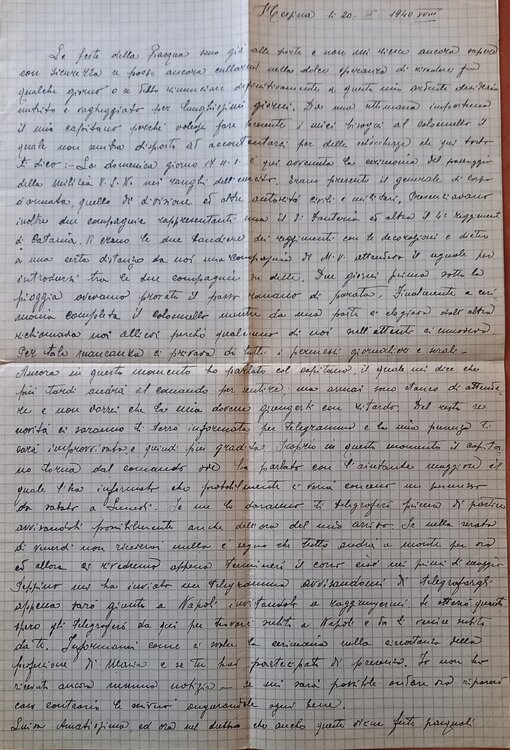 Messina li 20. III 1940 XVIII
Le feste della Pasqua sono già alle porte e non mi riesce ancora sapere
con sicurezza se posso ancora cullarmi nella dolce speranza di rivedere fra
qualche giorno o se debbo rinunciare definitivamente a questo mio ardente desiderio
nutrito e vagheggiato per lunghissimi giorni. Da una settimana importuno
il mio capitano perché volesse fare presente i miei bisogni al colonnello il
quale non sembra disposto ad accontentarci per delle sciocchezze che qui sotto
ti dico: - La domenica giorno è qui avvenuta la cerimonia del passaggio
della milizia V.S.N. nei ranghi dell'esercito. Erano presenti il generale di corpo
d'armata, quello di divisione ed altre autorità civili e militari, Presenziavano
inoltre due compagnie rappresentanti una il 3. Fanteria ed altra il 4. reggimento
di Catania. Vi erano le due bandiere dei reggimenti con le decorazioni e dietro
a una certa distanza da noi una compagnia di M.V. attendeva il segnale per
introdursi tra le due compagnie su dette. Due giorni prima sotto la
pioggia avevamo provato il passo romano di parata. Finalmente a ceri-
monia completa il colonnello mentre da una parte ci elogiava dall'altra
richiamava noi allievi perché qualcuno di noi sull'attenti si muoveva
Per tale mancanza ci privava di tutti i permessi giornalieri e serali.
Ancora in questo momento ho parlato col capitano, il quale mi dice che
più tardi andrà al comando per sentire, ma ormai sono stanco di attende-
re e non vorrei che la mia dovesse giungerti con ritardo. Del resto se
novità ci saranno ti terrò informata per telegramma e la mia presenza ti
sarà improvvisata e quindi più gradita. Proprio in questo momento il capita-
no torna dal comando ove ha parlato con l'aiutante maggiore il
quale l'ha informato che probabilmente ci verrà concesso un permesso
da sabato a lunedì. Se me lo daranno ti telegraferò prima di partire
avvisandoti possibilmente anche dell'ora del mio arrivo. Se nella serata
di venerdì non riceverai nulla è segno che tutto andrà a monte per ora
ed allora ci rivedremo appena terminerà il corso cioè nei primi di maggio
Peppino mi ha inviato un telegramma avvisandomi di telegrafargli
appena sarò giunto a Napoli invitandolo a raggiungermi. Se otterrò questo
spero gli telegraferò da qui per trovarsi subito a Napoli e da lì venire subito
da te. Informami come si svolse la cerimonia nella circostanza della
professione di Maria e se tu hai partecipato di presenza. Io non ho
ricevuto ancora nessuna notizia - se mi sarà possibile andare ora riparerò
caso contrario le scrivo augurandole ogni bene.
Luisa Amatissima, ed ora nel dubbio che anche queste visine feste pasquali